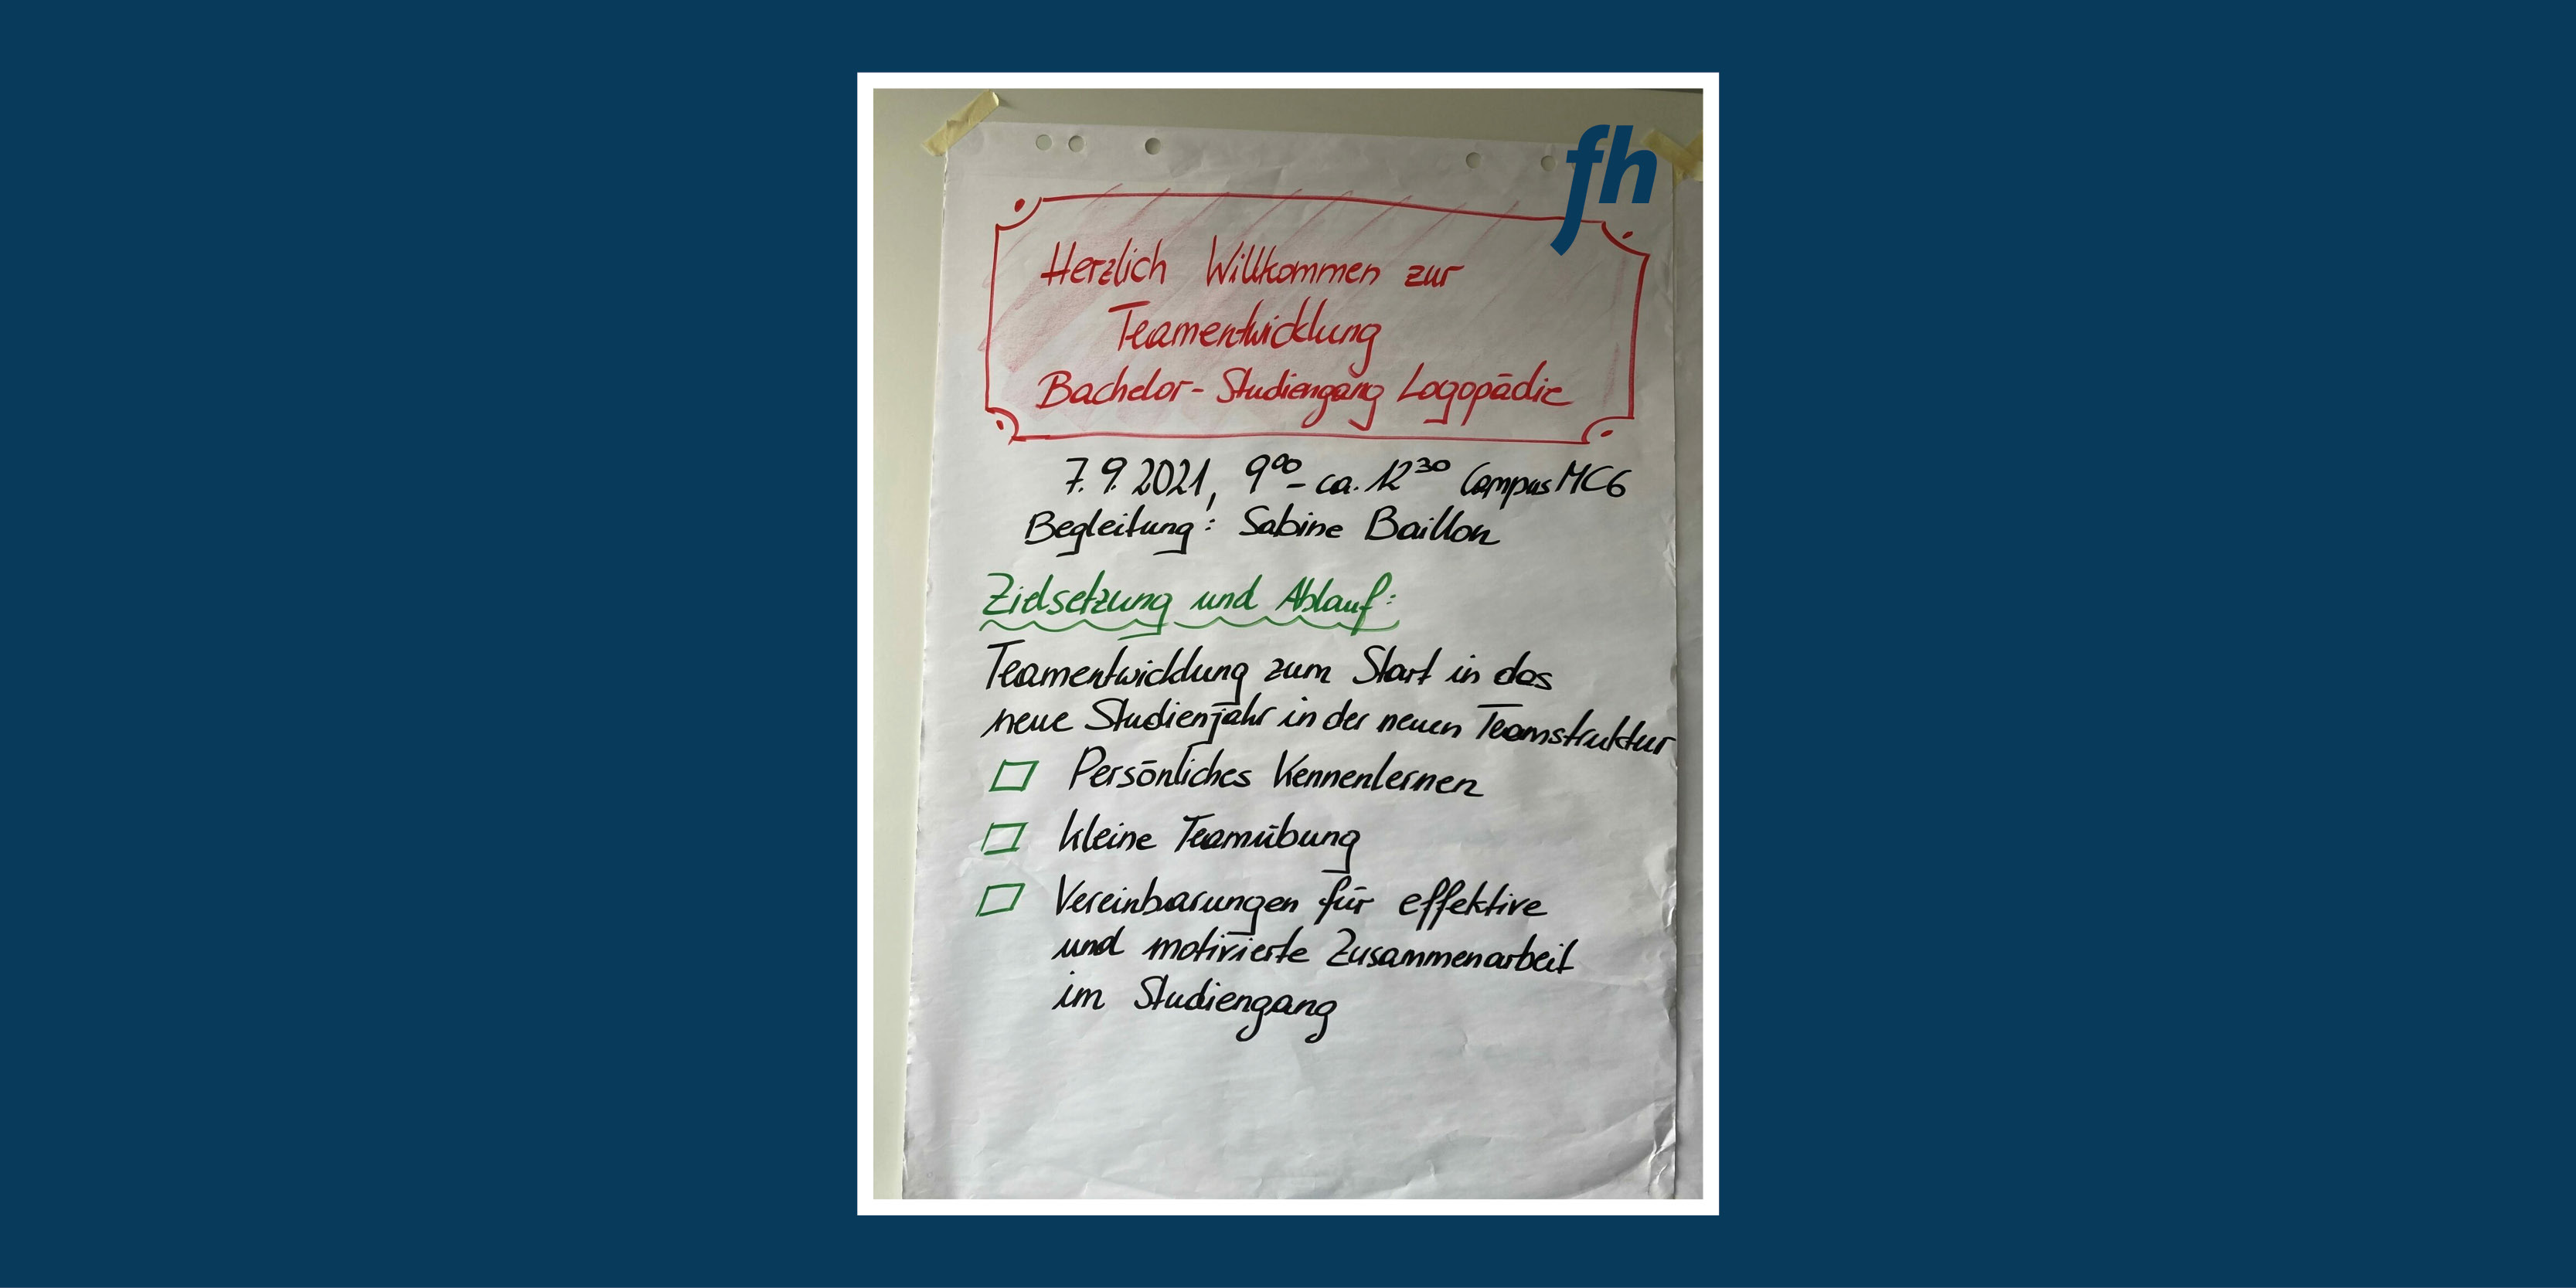 fh
Herzlich Willkommen zur
Teamentwicklung
Bachelor-Studiengang Logopädie
7.9.2021, 9⁰⁰ - ca. 12³⁰ Campus MC6
Begleitung: Sabine Baillon
Zielsetzung und Ablauf:
Teamentwicklung zum Start in das
neue Studienjahr in der neuen Teamstruktur
Persönliches Kennenlernen
kleine Teamübung
Vereinbarungen für effektive
und motivierte Zusammenarbeit
im Studiengang